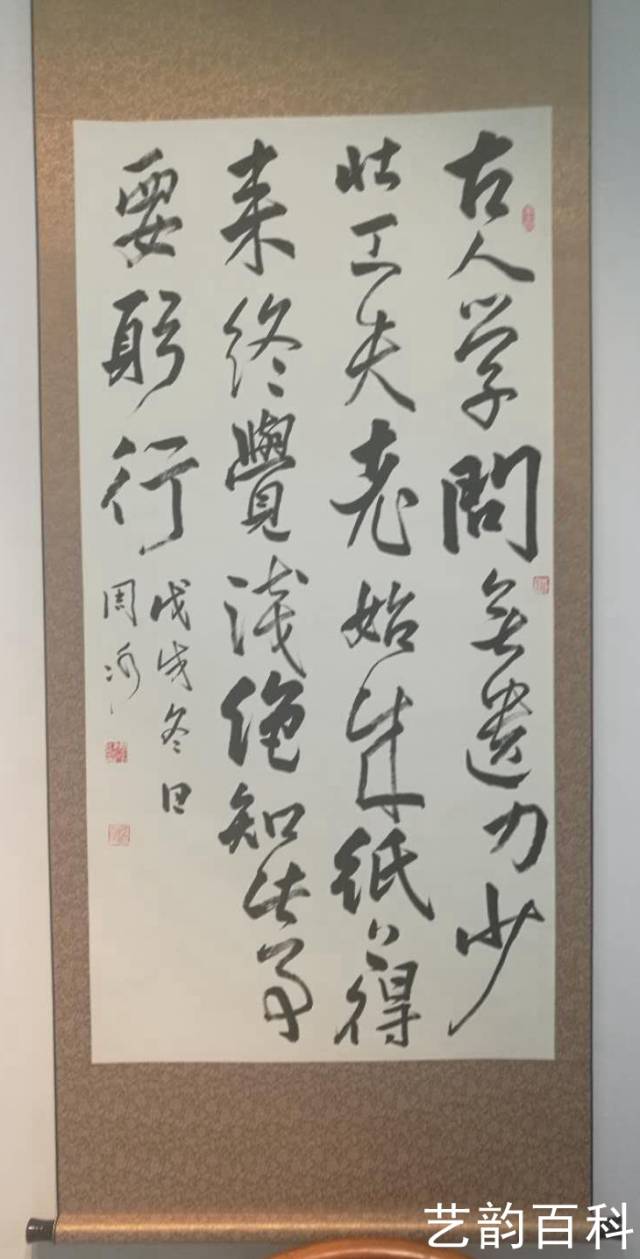 古人学問無遗力少
壮工夫老始成紙上得
来终覺浅绝知此事
要躬行
戊戌冬日
周
艺韵百科